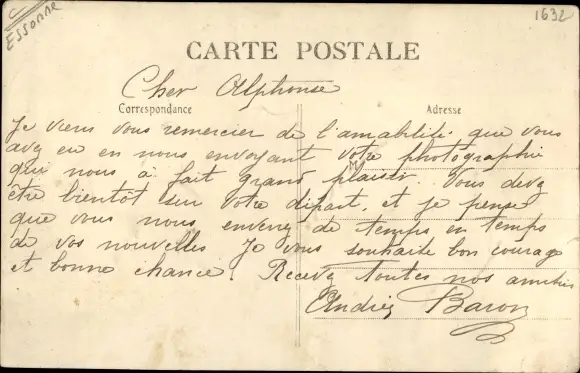 ESSONNE
1632
CARTE POSTALE
Cher Alphonse
Correspondance
Adresse
Je viens vous remercier de l'amabilité que vous
avez eu en nous envoyant votre photographie
qui nous a fait grand plaisir. Vous devez
être bientôt sur votre départ, et je pense
que vous nous enverez de temps en temps
de vos nouvelles Je vous souhaite bon courage
et bonne chance. Recevez toutes nos amitiés
Baron